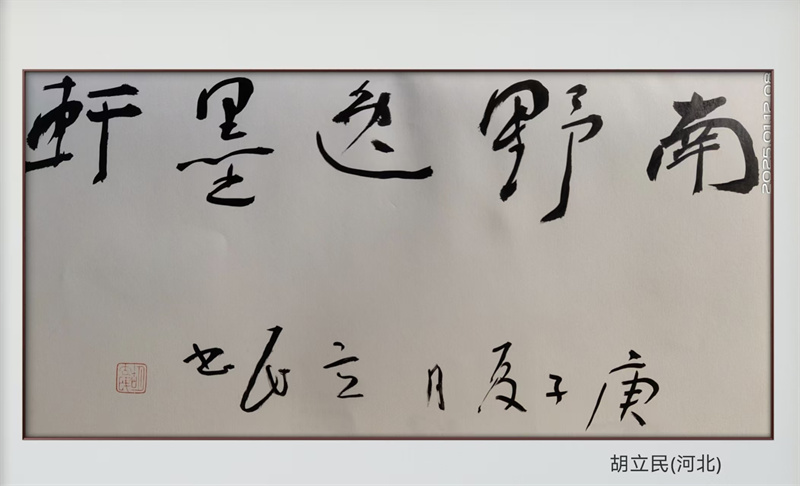 南野逸墨軒
庚子夏月立民书
胡立民(河北)